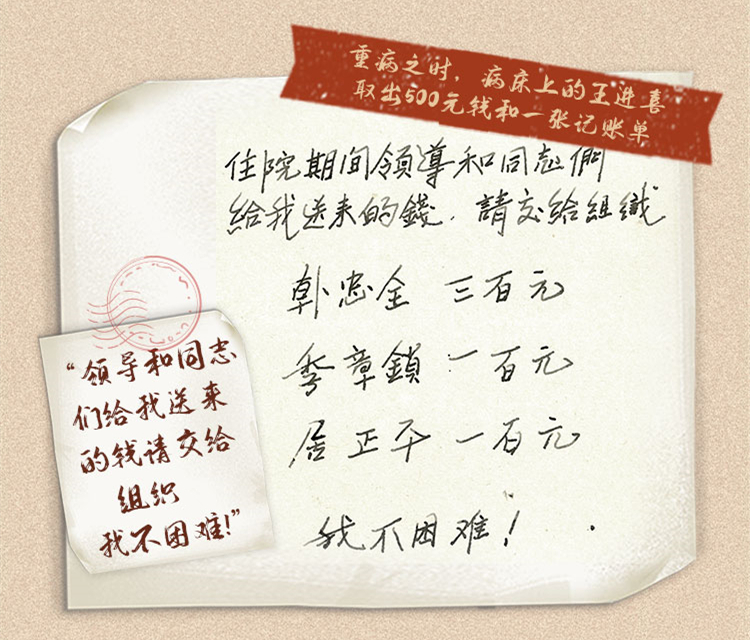 重病之时，病床上的王进喜
取出500元钱和一张记账单
住院期间領導和同志們
給我送来的錢.請交給組織
韩忠全 三百元
季章鎖 一百元
居正平 一百元
我不困难！
“领导和同志
们给我送来
的钱请交给
组织
我不困难!”